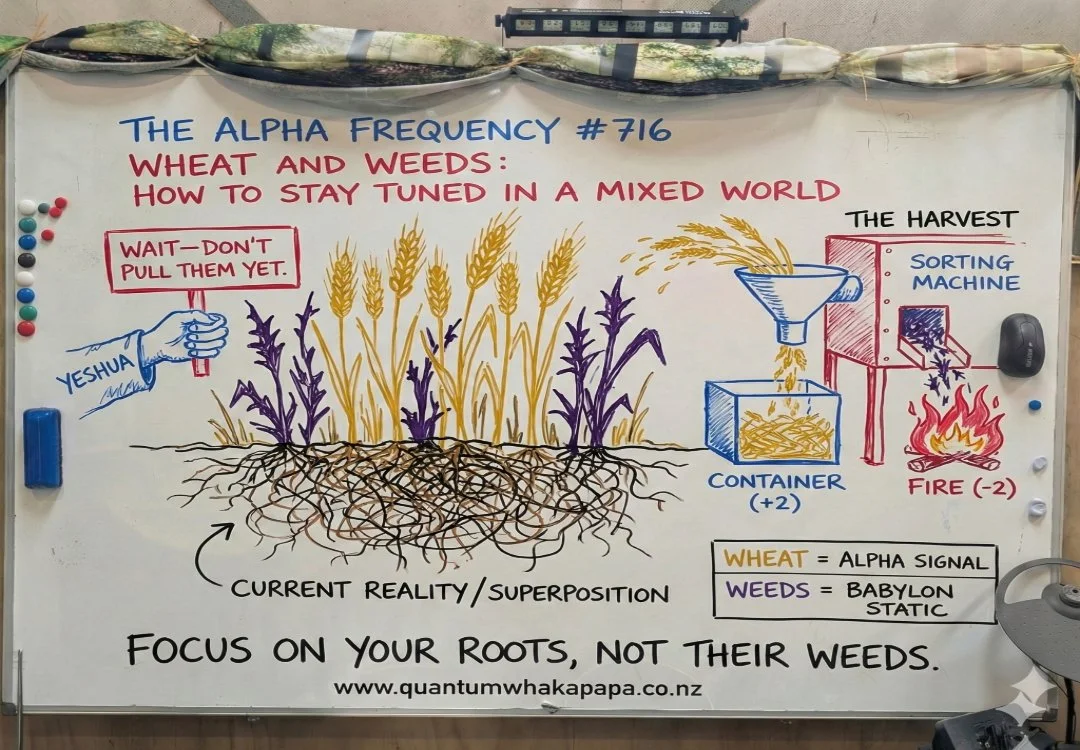 THE ALPHA FREQUENCY #716
WHEAT AND WEEDS:
HOW TO STAY TUNED IN A MIXED WORLD
WAIT—DON'T
PULL THEM YET.
YESHUA
THE HARVEST
SORTING
MACHINE
CONTAINER
(+2)
FIRE (-2)
CURRENT REALITY/SUPERPOSITION
WHEAT = ALPHA SIGNAL
WEEDS = BABYLON
STATIC
FOCUS ON YOUR ROOTS, NOT THEIR WEEDS.
www.quantumwhakapapa.co.nz